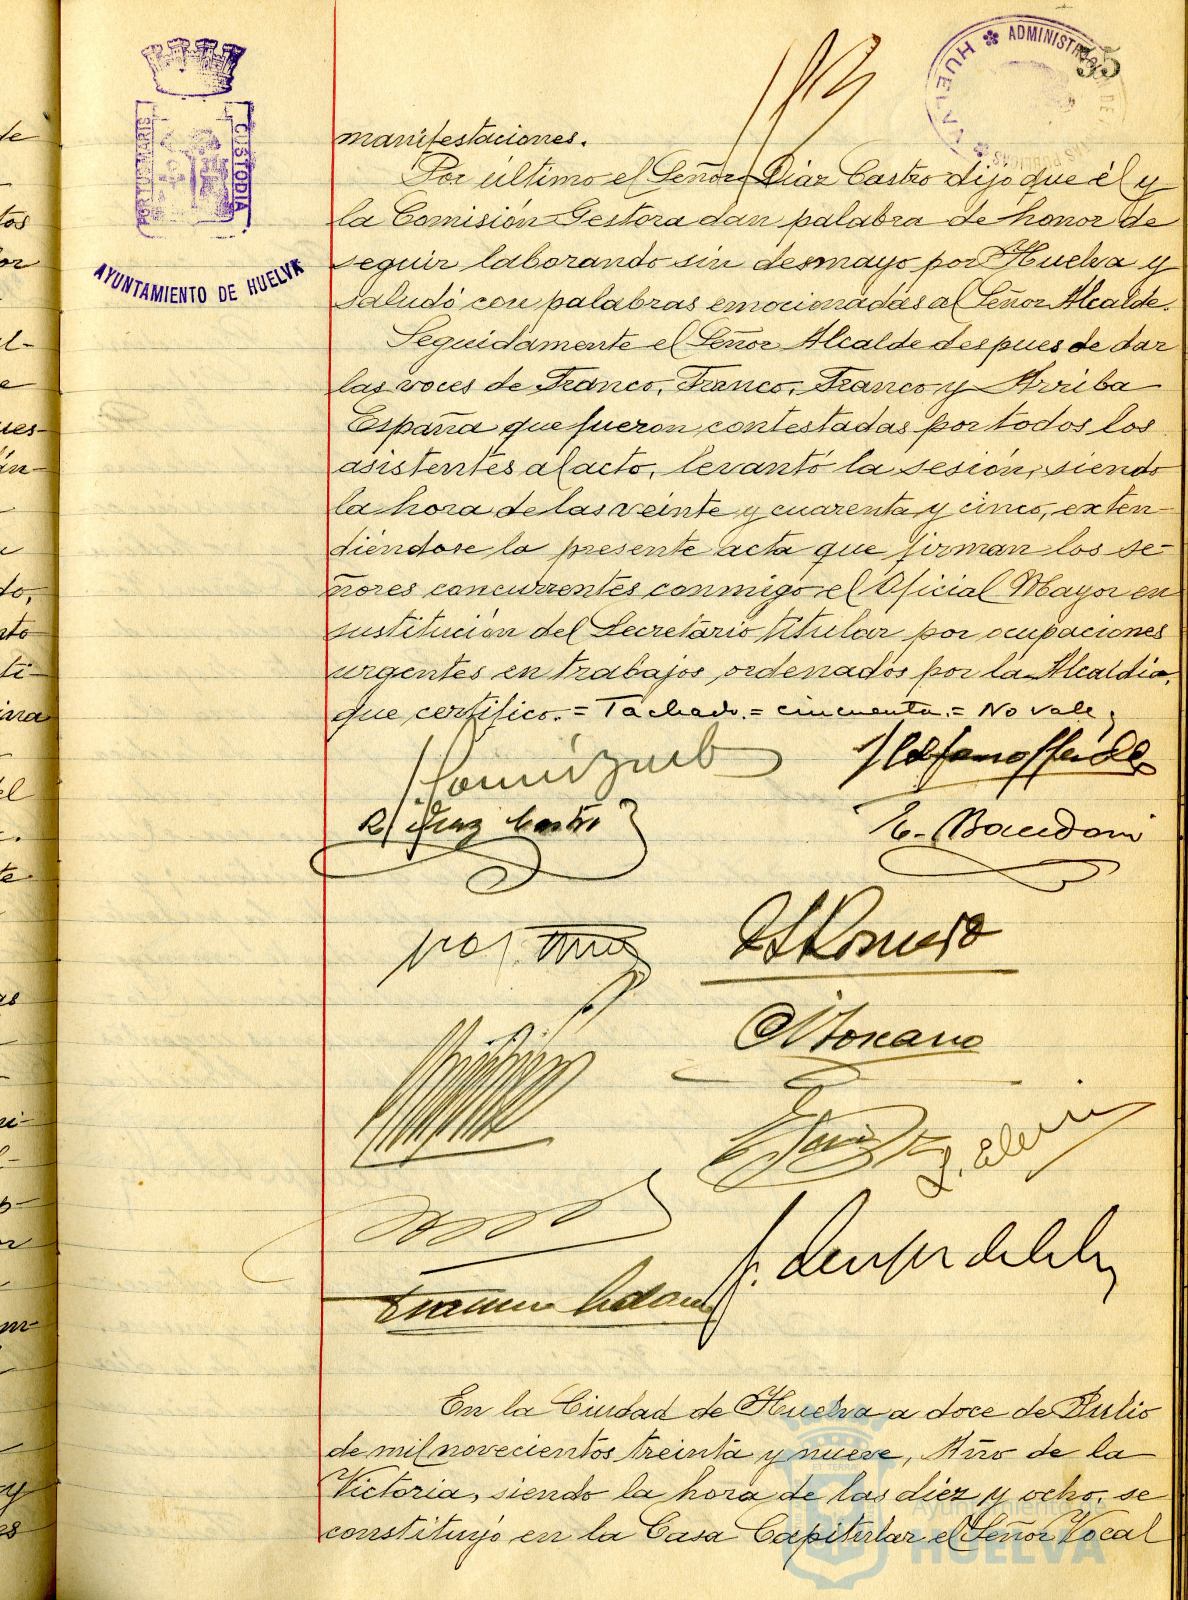 PORTUS MARIS
CUSTODIA
AYUNTAMIENTO DE HUELVA
ADMINISTRACIÓN DE
HUELVA
35
manifestaciones.
Por último el Señor Díaz Castro dijo que él y
la Comisión Gestora dan palabra de honor de
seguir laborando sin desmayo por Huelva y
saludó con palabras emocionadas al Señor Alcalde.
Seguidamente el Señor Alcalde despues de dar
las voces de Franco, Franco, Franco y Arriba
España que fueron contestadas por todos los
asistentes al acto, levantó la sesión, siendo
la hora de las veinte y cuarenta y cinco, exten-
diéndose la presente acta que firman los se-
ñores concurrentes conmigo el Oficial Mayor en
sustitución del Secretario titular por ocupaciones
urgentes en trabajos ordenados por la Alcaldia,
que certifico. = Tachado = cincuenta = No vale,
R. Diaz Castro
Romero
En la Ciudad de Huelva a doce de Julio
de mil novecientos treinta y nueve, Año de la
Victoria, siendo la hora de las diez y ocho, se
constituyó en la Casa Capitular el Señor Vocal
Ayuntamiento de
HUELVA